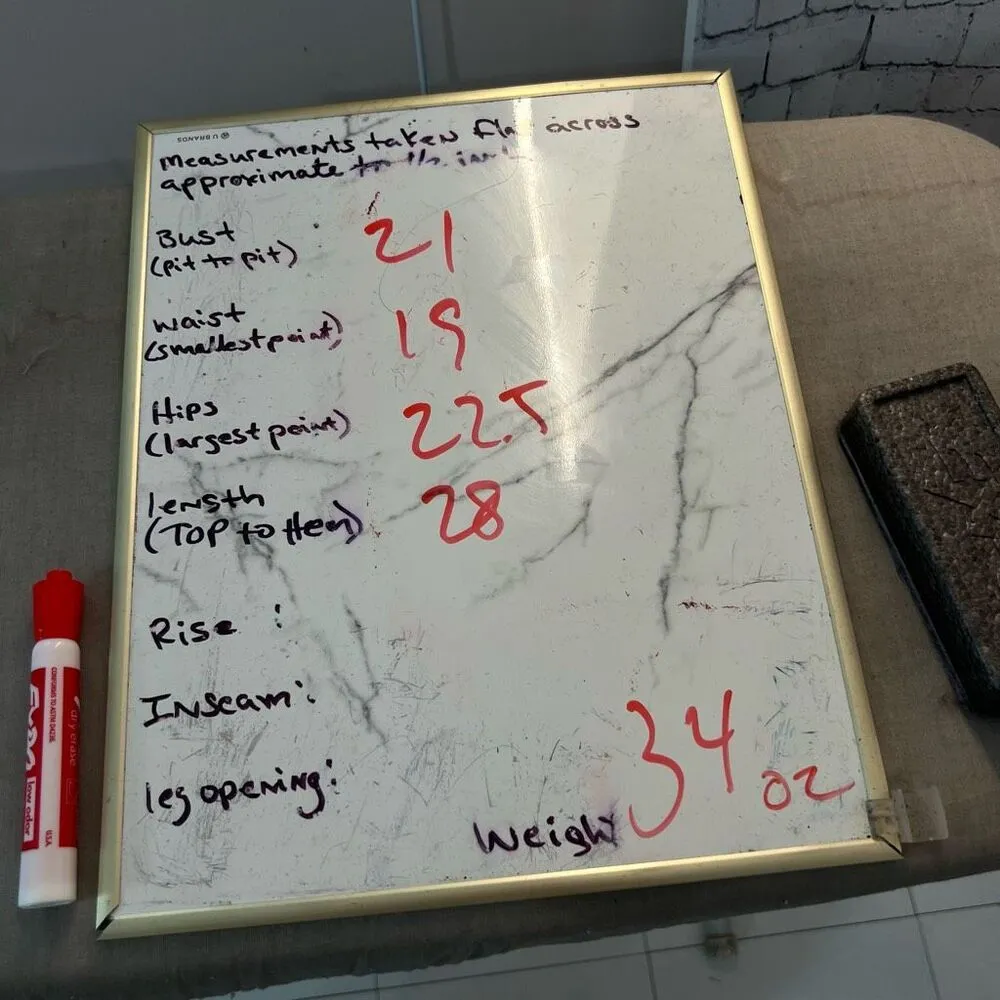 U BRANDS
measurements taken across
approximate to 1/2
Bust 21
(pit to pit)
waist 19
(smallest point)
Hips 22.5
(largest point)
length 28
(TOP to Hem)
Rise :
Inseam:
leg opening:
Weight 34 oz
EXPO
dry erase
low odor
CONFORMS TO ASTM D4236
USA